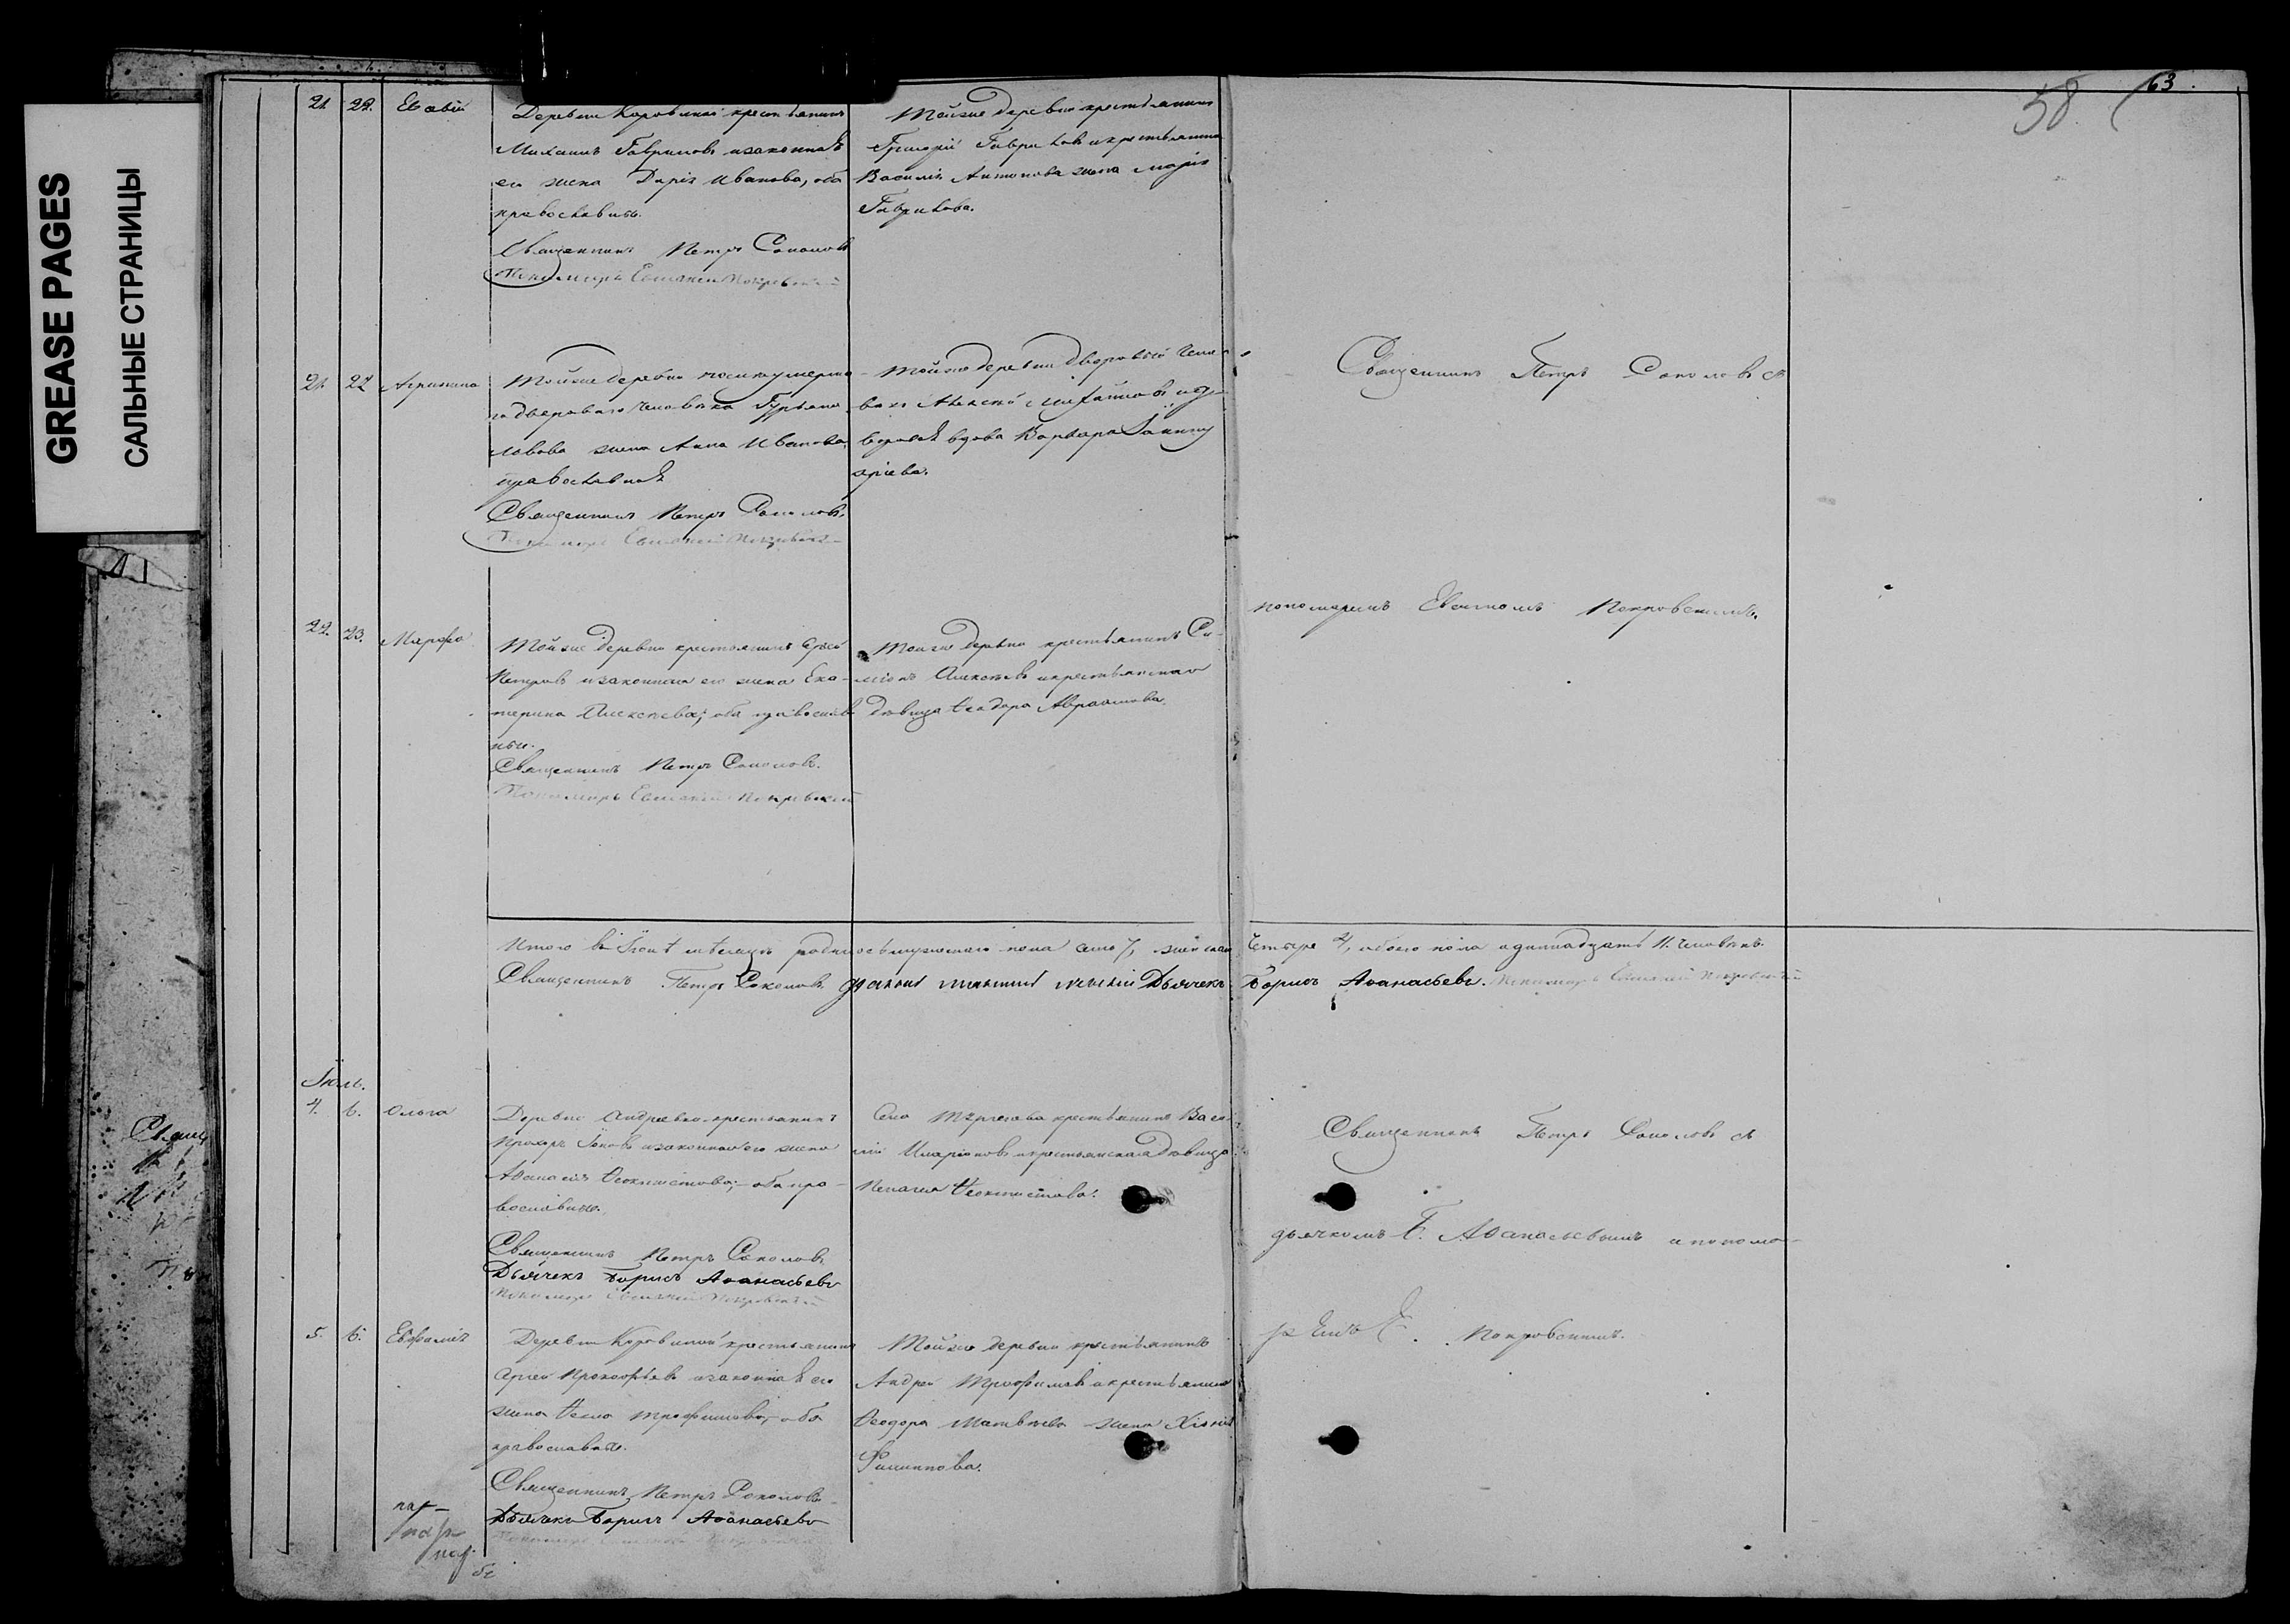 GREASE PAGES
САЛЬНЫЕ СТРАНИЦЫ
63.
58.
21. 22. Евсевій
Деревни Коровиной крестьянинъ
Михаилъ Гавриловъ и законная
его жена Дарія Иванова, оба
православные.
Священникъ Петръ Соколовъ
Пономарь Евменій Покровскій
Тойже деревни крестьянинъ
Григорій Гавриловъ и крестьянина
Василія Антонова жена Марія
Гаврилова.
21. 22. Агрипина
Тойже деревни послѣ умерша-
го двороваго человѣка Гурьяна
жена Анна Иванова,
православная
Священникъ Петръ Соколовъ.
Пономарь Евменій Покровскій
Тойже деревни дворовый чело-
вѣкъ Алексѣй Михайловъ и д-
воровая вдова Варвара
Священникъ Петръ Соколовъ съ
пономаремъ Евменіемъ Покровскимъ.
22. 23. Марфа
Тойже деревни крестьянинъ
Петровъ и законная его жена Ека-
терина Алексѣева; оба православ-
ные.
Священникъ Петръ Соколовъ.
Пономарь Евменій Покровскій
Тойже деревни крестьянинъ Си-
Алексѣевъ и крестьянская
дѣвица Ѳеодора Авраамова.
Итого въ Іюнѣ мѣсяцѣ родилось мужескаго пола семь 7, женскаго четыре 4, обоего пола одиннадцать 11. человѣкъ.
Священникъ Петръ Соколовъ Дьячекъ Борисъ Аѳанасьевъ. Пономарь Евменій Покровскій
Іюль.
4. 6. Ольга
Деревни Андреевки крестьянинъ
Прохоръ и законная его жена
Аѳанасія Ѳеоктистова; оба пра-
вославные.
Священникъ Петръ Соколовъ
Дьячекъ Борисъ Аѳанасьевъ
Пономарь Евменій Покровскій
Села крестьянинъ Васи-
лій Иларіоновъ и крестьянская дѣвица
Пелагія Ѳеоктистова.
Священникъ Петръ Соколовъ съ
дьячкомъ Б. Аѳанасьевымъ и понома-
ремъ Е. Покровскимъ.
5. 6. Евфимія
Деревни Коровиной крестьянинъ
Сергей Прокофьевъ и законная его
жена Ѳекла Трофимова, оба
православные.
Священникъ Петръ Соколовъ
Дьячекъ Борисъ Аѳанасьевъ
Тойже деревни крестьянинъ
Андрей Трофимовъ и крестьянина
Ѳеодора Матвѣева жена Хіонія
Филиппова.